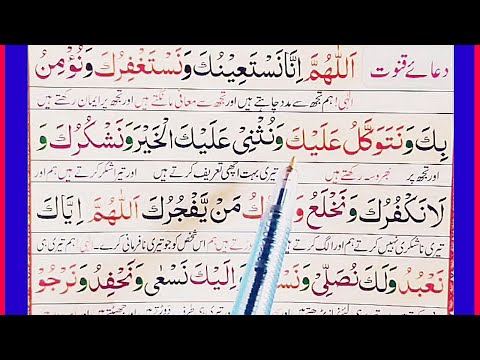 دعائے قنوت
اَللّٰهُمَّ اِنَّا نَسْتَعِيْنُكَ وَنَسْتَغْفِرُكَ وَنُؤْمِنُ
الٰہی! ہم تجھ سے مدد چاہتے ہیں اور تجھ سے معافی مانگتے ہیں اور تجھ پر ایمان رکھتے ہیں
بِكَ وَنَتَوَكَّلُ عَلَيْكَ وَنُثْنِيْ عَلَيْكَ الْخَيْرَ وَنَشْكُرُكَ وَ
اور تجھ پر بھروسہ رکھتے ہیں تیری بہت اچھی تعریف کرتے ہیں اور تیرا شکر کرتے ہیں اور
لَا نَكْفُرُكَ وَنَخْلَعُ مَنْ يَّفْجُرُكَ اَللّٰهُمَّ اِيَّاكَ
تیری ناشکری نہیں کرتے ہم اور الگ کرتے ہیں ہم اس شخص کو جو تیری نافرمانی کرے الٰہی ہم تیری ہی
نَعْبُدُ وَلَكَ نُصَلِّيْ اِلَيْكَ نَسْعٰى وَنَحْفِدُ وَنَرْجُوْ